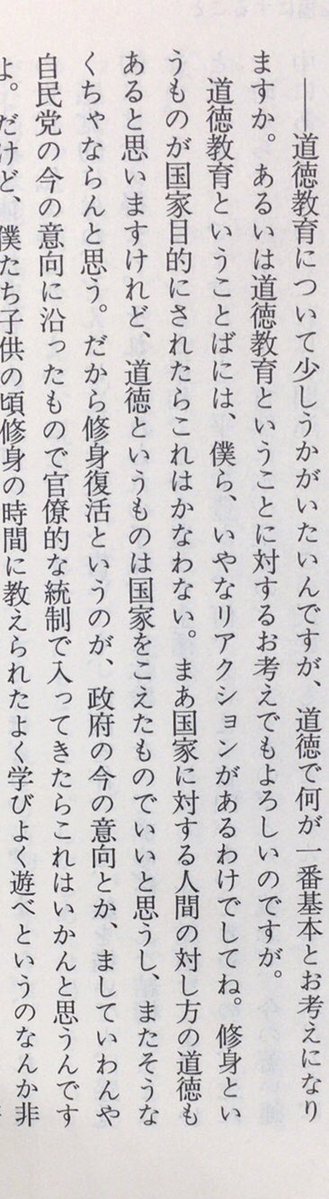 ――道徳教育について少しうかがいたいんですが、道徳で何が一番基本とお考えになり
ますか。あるいは道徳教育ということに対するお考えでもよろしいのですが。
道徳教育ということばには、僕ら、いやなリアクションがあるわけでしてね。修身とい
うものが国家目的にされたらこれはかなわない。まあ国家に対する人間の対し方の道徳も
あると思いますけれど、道徳というものは国家をこえたものでいいと思うし、またそうな
くちゃならんと思う。だから修身復活というのが、政府の今の意向とか、ましていわんや
自民党の今の意向に沿ったもので官僚的な統制で入ってきたらこれはいかんと思うんです
よ。だけど、僕たち子供の頃修身の時間に教えられたよく学びよく遊べというのなんか非